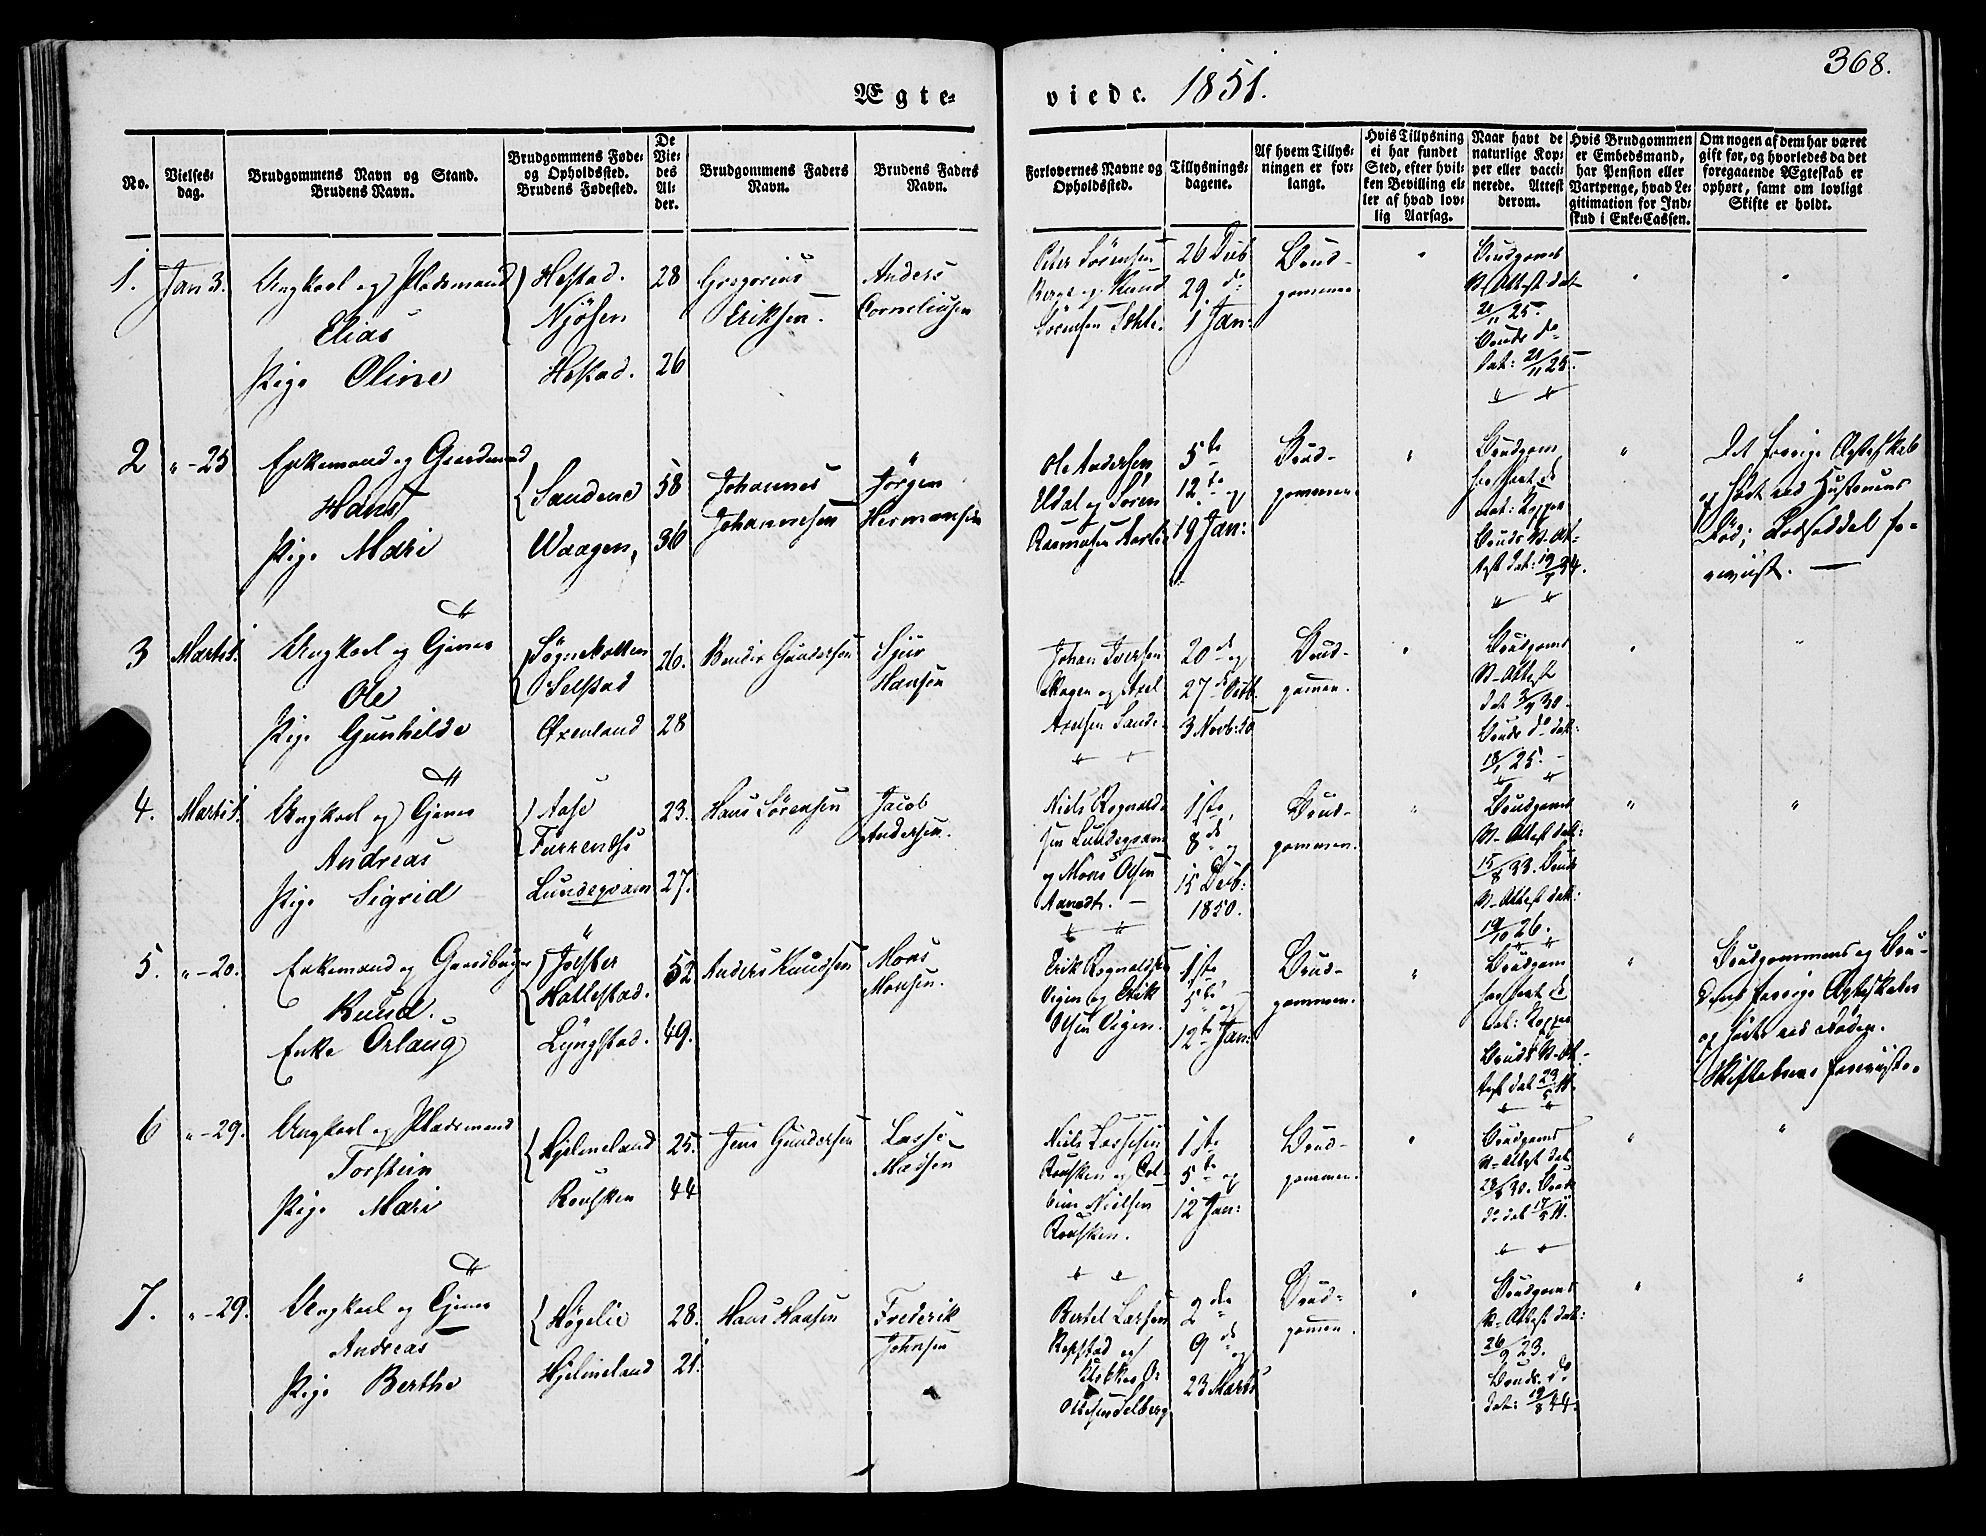 368.
Ægte-
viede. 1851.
No.
Vielses-
dag.
Brudgommens Navn og Stand.
Brudens Navn.
Brudgommens Føde-
og Opholdssted.
Brudens Fødested.
De
Vie-
des
Al-
der.
Brudgommens Faders
Navn.
Brudens Faders
Navn.
Forlovernes Navne og
Opholdssted.
Tillysnings-
dagene.
Af hvem Tillys-
ningen er for-
langt.
Hvis Tillysning
ei har fundet
Sted, efter hvil-
ken Bevilling el-
ler af hvad lov-
lig Aarsag.
Naar havt de
naturlige Kop-
per eller vacci-
nerede. Attest
derom.
Hvis Brudgommen
er Embedsmand,
har Pension eller
Vartpenge, hvad Le-
gitimation for Ind-
skud i Enke-Cassen.
Om nogen af dem har været
gift før, og hvorledes da det
foregaaende Ægteskab er
ophørt, samt om lovligt
Skifte er holdt.
1. Jan 3. Ungkarl og Pladsmand
Elias
Pige Oline
Hestad.
Njøsen
Hestad.
28
26
Gregorius
Eriksen
Anders
Corneliusen
Peter Sørensen
Berge og Knud
Sørensen
26 Deb
29. do
1 Jan:
Brud-
gommen.
Brudgoms
V-Attest dat
21/11 25.
Bruds do
Dat: 21/11 25.
2 " - 25 Enkemand og Gaardmand
Hans
Pige Mari
Sandene
Waagen
58
36
Johannes
Johannesen
Jørgen
Hermansen
Ole Andersen
Eldal og Søren
Rasmusen
5te
12te og
19 Jan:
Brud-
gommen.
Brudgom
nat: Kopper
Bruds V-At-
test dat: 19/7 34.
Det forrige Ægteskab
ophørt ved Hustruens
Død;
3 Marts 1. Ungkarl og Tjener
Ole
Pige Gunhilde
Søgnekotten
Selstad
Oxenland
26.
28
Bendix Gundersen
Sjur
Hansen
Johan Iversen
Skagen og Axel
Axelsen Sande
20de og
27de Octb.
3 Novb: 50
Brud-
gommen.
Brudgoms
V-Attest
dat 3/7 30.
Bruds do dat:
18/1 25.
4. Marts 1. Ungkarl og Tjener
Andreas
Pige Sigrid
Aase
Furrenæs
Lundeqvam
23.
27.
Hans Sørensen
Jacob
Andersen.
Niels Rognald-
sen Lundeqvam
og Mons Olsen
1ste,
8de og
15 Decb:
1850.
Brud-
gommen.
Brudgoms
V-Attest dat:
15/8 33. Bruds
V-Attest dat:
19/10 26.
5. " - 20. Enkemand og Gaardbruger
Knud.
Enke Orlaug
Jølster
Hattestad.
Lÿngstad.
52
49.
Anders Knudsen
Mons
Monsen.
Erik Rognaldsen
Vigen og Erik
Olsen Vigen.
1ste
5te og
12te Jan:
Brud-
gommen.
Brudgom
nat: Kopper
Bruds V-At-
test dat 29/5 11.
Brudgommens og Bru-
dens forrige Ægteskaber
ophørt ved Døden.
6 " - 29. Ungkarl og Pladsmand
Torstein
Pige Mari
Hjelmeland
Rousken
25.
44
Jens Gundersen
Lasse
Madsen
Niels Lassesen
Rousken og
Nielsen
Rousken.
1ste
5te og
12 Jan:
Brud-
gommen.
Brudgoms
V-Attest dat
28/8 30. Bruds
do dat 17/5 11.
7. " - 29. Ungkarl og Tjener
Andreas
Pige Berthe
Høgelie
Hjelmeland
28.
21.
Hans Hansen
Frederik
Johnsen
Bertel Larsen
Repstad og
Selberg
2den
9de og
23 Marts
Brud-
gommen.
Brudgoms
V-Attest dat:
26/9 23.
Bruds do
dat: 19/8 44.